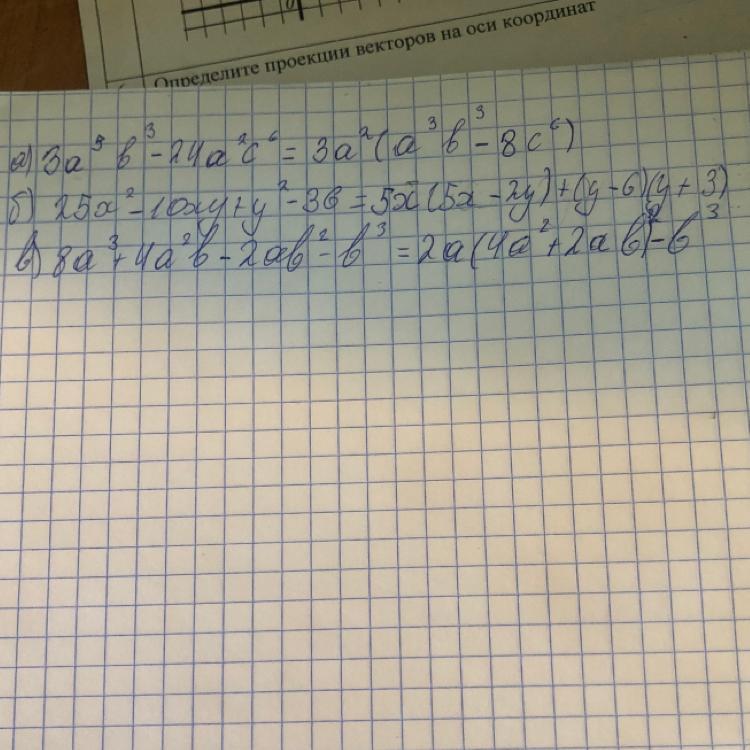 Определите проекции векторов на оси координат
а) 3a⁵b³ - 24a²c⁶ = 3a²(a³b³ - 8c⁶)
б) 25x² - 10xy + y² - 36 = 5x(5x - 2y) + (y - 6)(y + 3)
в) 8a³ + 4a²b - 2ab² - b³ = 2a(4a² + 2ab)² - b³